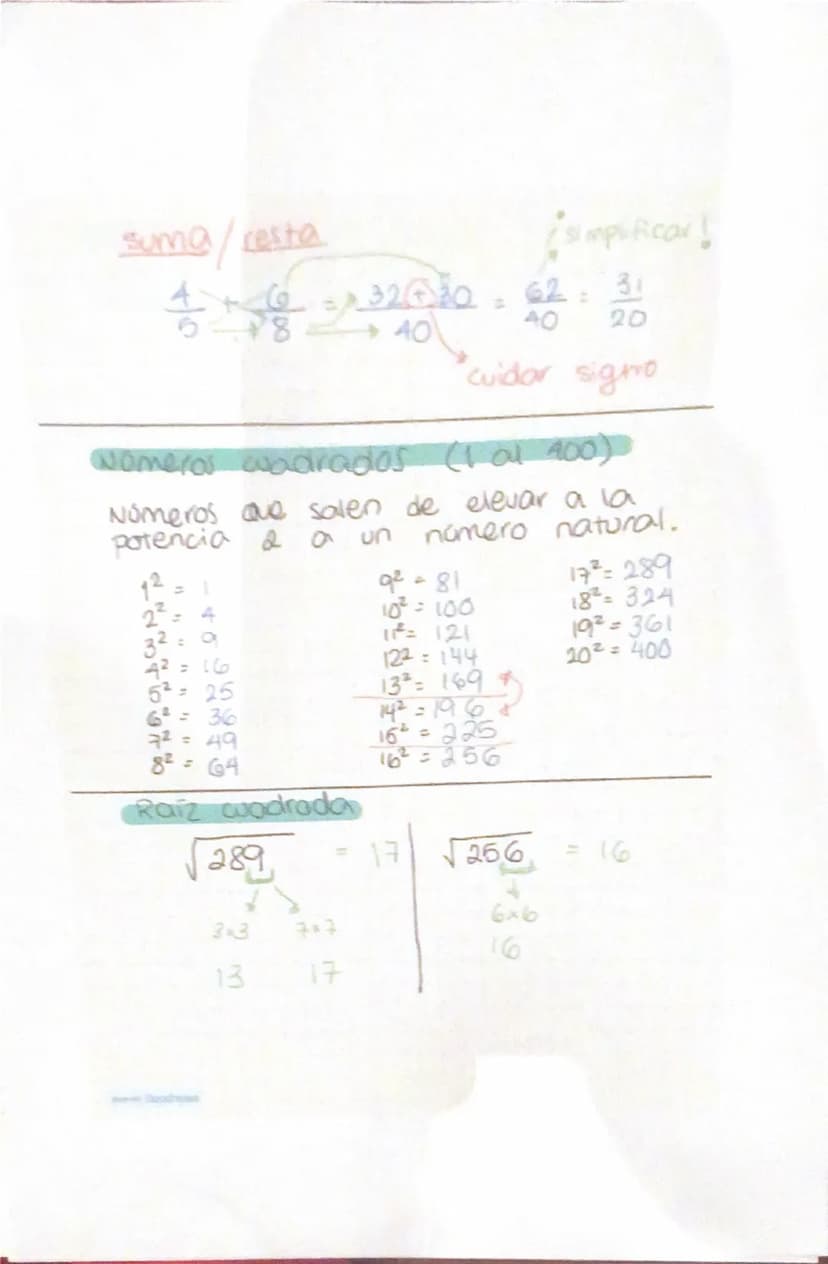 suma / resta
¡simplificar!
4/5 + 6/8 = 32 + 30 / 40 = 62/40 = 31/20
cuidar signo
Números cuadrados (1 al 400)
Números que salen de elevar a la
potencia 2 a un número natural.
1² = 1
2² = 4
3² = 9
4² = 16
5² = 25
6² = 36
7² = 49
8² = 64
9² = 81
10² = 100
11² = 121
12² = 144
13² = 169
14² = 196
15² = 225
16² = 256
17² = 289
18² = 324
19² = 361
20² = 400
Raíz cuadrada
√289 = 17
3x3 7x7
13 17
√256 = 16
6x6
16